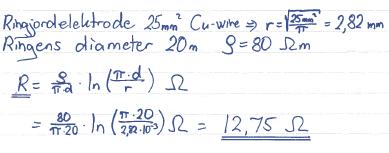 Ringjordelektrode 25mm² Cu-wire ⇒ r=√(25mm²/π) = 2,82 mm
Ringens diameter 20m ρ=80 Ωm
R = ρ/(π·d) · ln(π·d/r) Ω
= 80/(π·20) · ln(π·20/(2,82·10⁻³)) Ω = 12,75 Ω